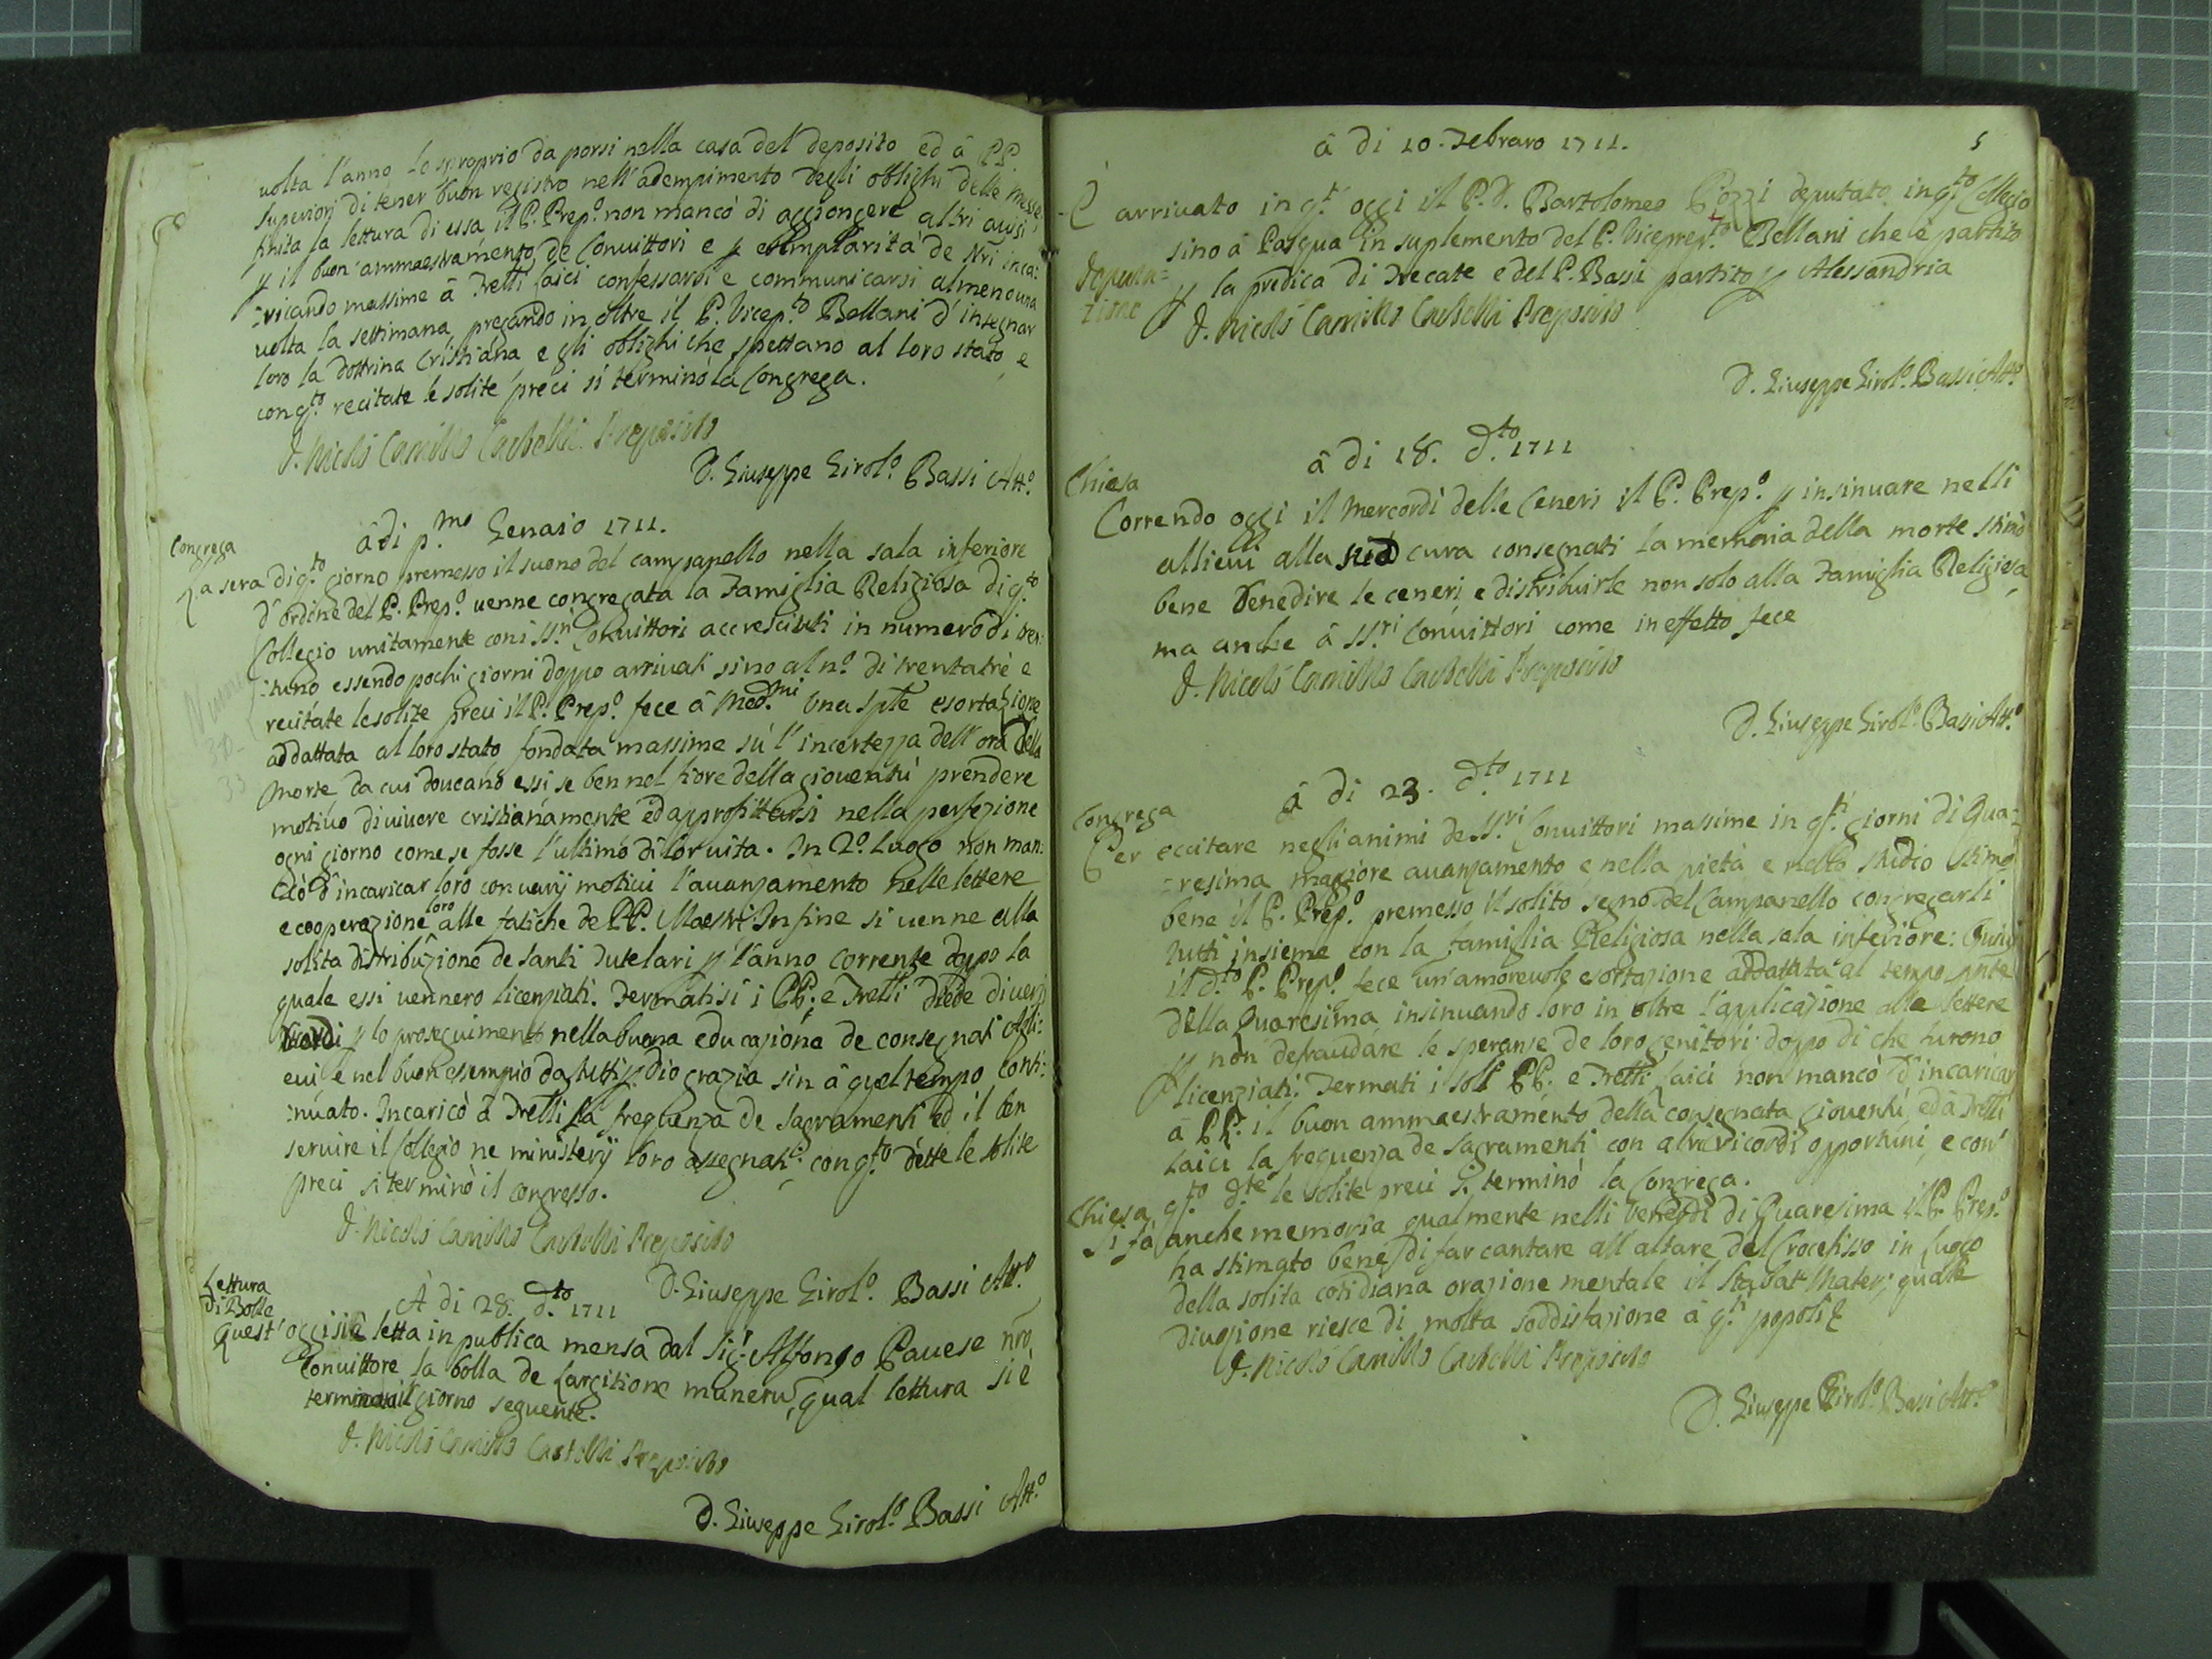 uolta l'anno lo sproprio da porsi nella casa del deposito ed â PP.
Superiori di tener buon registro nell'adempimento degli oblighi delle messe,
finita la lettura di essa il P. Prep.º non mancò di aggiongere altri auisi
p il buon'ammaestramento de Conuittori e p esemplarità de Nri inca:
:ricando massime â Fretti laici confessarsi e communicarsi almeno una
uolta la settimana, pregando in oltre il P. Vicep.to Bellani d'insegnar
loro la dottrina Cristiana e gli oblighi che spettano al loro stato, e
con q.to recitate le solite preci si terminò la Congrega.
D. Nicolò Camillo Castelli Preposito
D. Giuseppe Girol.º Bassi Att.º
â di p.mo Genaio 1711.
Congrega
La sera di q.to giorno premesso il suono del campanello nella sala inferiore
d'ordine del P. Prep.º uenne congregata la Famiglia Religiosa di q.to
Collegio unitamente con i SS.ri Conuittori accresciuti in numero di tren:
:tuno essendo pochi giorni doppo arriuati sino al nº. di trentatrè e
Num
30-
33
recitate le solite preci il P. Prep.º fece â med.mi una spte esortazione
addattata al loro stato fondata massime sù l'incertezza dell'ora della
morte, da cui doueano essi se ben nel fiore della giouentù prendere
motiuo di uiuere cristianamente ed approfittarsi nella perfezione
ogni giorno come se fosse l'ultimo di lor uita. In 2º. luogo non man:
:cò d'incaricar loro con uarij motiui l'auanzamento nelle lettere
e cooperazione loro alle fatiche de PP. Maestri. In fine si uenne alla
solita distribuzione de Santi Tutelari p l'anno corrente doppo la
quale essi uennero licenziati. Fermatisi i PP. e Fretti diede diuersi
ricordi p lo proseguimento nella buona educazione de consegnati Alli:
eui e nel buon esempio da tutti p dio grazia sin â quel tempo conti:
:nuato. Incaricò â Fretti la frequenza de Sagramenti ed il ben
seruire il Collegio ne ministerij loro assegnati: con q.to dette le solite
preci si terminò il congresso.
D. Nicolò Camillo Castelli Preposito
D. Giuseppe Girol.º Bassi Att.º
Lettura
di Bolle
A di 28. d.to 1711
Quest'oggi si è letta in publica mensa dal Sig.r Alfonso Pauese nro
Conuittore la bolla de largitione muneru, qual lettura si è
terminata il giorno seguente.
D. Nicolò Camillo Castelli Preposito
D. Giuseppe Girol.º Bassi Att.º
5
â di 10. Febraro 1711.
È arriuato in q.to oggi il P. D. Bartolomeo Pozzi deputato in q.to Collegio
sino â Pasqua in suplemento del P. Viceprep.to Bellani che è partito
Deputa=
tione
p la predica di Trecate e del P. Bassi partito p Alessandria
D. Nicolò Camillo Castelli Preposito
D. Giuseppe Girol.º Bassi Att.º
â di 18. d.to 1711
Chiesa
Correndo oggi il Mercordì delle Ceneri il P. Prep.º p insinuare nelli
allieui alla sua cura consegnati la memoria della morte stimò
bene benedire le ceneri, e distribuirle non solo alla Famiglia Religiosa,
ma anche â SS.ri Conuittori come in effetto fece
D. Nicolò Camillo Castelli Preposito
D. Giuseppe Girol.º Bassi Att.º
â di 23. d.to 1711
Congrega
Per eccitare negli animi de SS.ri Conuittori massime in q.ti giorni di Qua:
:resima maggiore auanzamento e nella pietà e nello studio stimò
bene il P. Prep.º premesso il solito segno del Campanello congregarli
tutti insieme con la famiglia Religiosa nella sala inferiore: Quiui
il d.to P. Prep.º fece un'amoreuole esortazione addattata al tempo pnte
della Quaresima insinuando loro in oltre l'applicazione alle lettere
p non defraudare le speranze de loro genitori: doppo di che furono
licenziati. Fermati i soli PP. e Fretti laici non mancò d'incaricar
a PP. il buon ammaestramento della consegnata giouentù, ed â Fretti
laici la frequenza de Sagramenti con altri ricordi opportuni, e con
q.to d.te le solite preci si terminò la Congrega.
Chiesa
Si fà anche memoria qualmente nelli Venerdì di Quaresima il P. Prep.º
ha stimato bene di far cantare all'altare del Crocefisso in luogo
della solita cotidiana orazione mentale il Stabat Mater; quale
diuozione riesce di molta soddisfazione â q.ti popoli
D. Nicolò Camillo Castelli Preposito
D. Giuseppe Girol.º Bassi Att.º